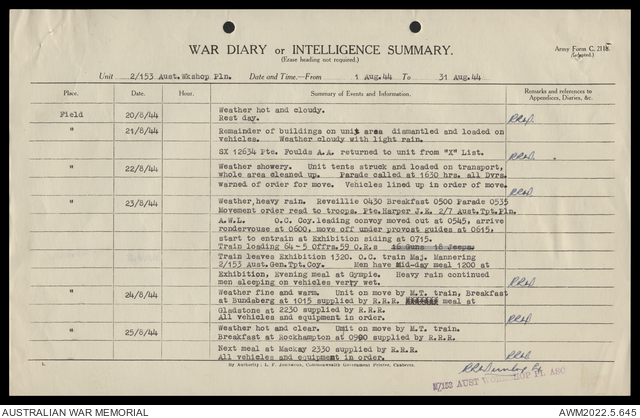 WAR DIARY or INTELLIGENCE SUMMARY.
(Erase heading not required.)
Army Form C. 2118.
(Adapted.)
Unit 2/153 Aust.Wkshop Pln. Date and Time—From 1 Aug.44 To 31 Aug.44
Place. Date. Hour. Summary of Events and Information. Remarks and references to Appendices, Diaries, &c.
Field 20/8/44 Weather hot and cloudy.
Rest day.
" 21/8/44 Remainder of buildings on unit area dismantled and loaded on
vehicles. Weather cloudy with light rain.
SX 12634 Pte. Foulds A.A. returned to unit from "X" List.
" 22/8/44 Weather showery. Unit tents struck and loaded on transport,
whole area cleaned up. Parade called at 1630 hrs. all Dvrs.
warned of order for move. Vehicles lined up in order of move.
" 23/8/44 Weather, heavy rain. Reveillie 0430 Breakfast 0500 Parade 0535
Movement order read to troops. Pte.Harper J.E. 2/7 Aust.Tpt.Pln.
A.W.L. O.C. Coy.leading convoy moved out at 0545, arrive
rondervouse at 0600, move off under provost guides at 0615,
start to entrain at Exhibition siding at 0715.
Train loading 64-5 Offrs.59 O.R.s 16 Guns 18 Jeeps.
Train leaves Exhibition 1320. O.C. train Maj. Mannering
2/153 Aust.Gen.Tpt.Coy. Men have Mid-day meal 1200 at
Exhibition, Evening meal at Gympie. Heavy rain continued
men sleeping on vehicles very wet.
" 24/8/44 Weather fine and warm. Unit on move by M.T. train, Breakfast
at Bundaberg at 1015 supplied by R.R.R. meal at
Gladstone at 2230 supplied by R.R.R.
All vehicles and equipment in order.
" 25/8/44 Weather hot and clear. Unit on move by M.T. train.
Breakfast at Rockhampton at 0900 supplied by R.R.R.
Next meal at Mackay 2330 supplied by R.R.R.
All vehicles and equipment in order.
By Authority: L. F. Johnston, Commonwealth Government Printer, Canberra.
2/153 AUST WORKSHOP PL ASC
AUSTRALIAN WAR MEMORIAL AWM2022.5.645